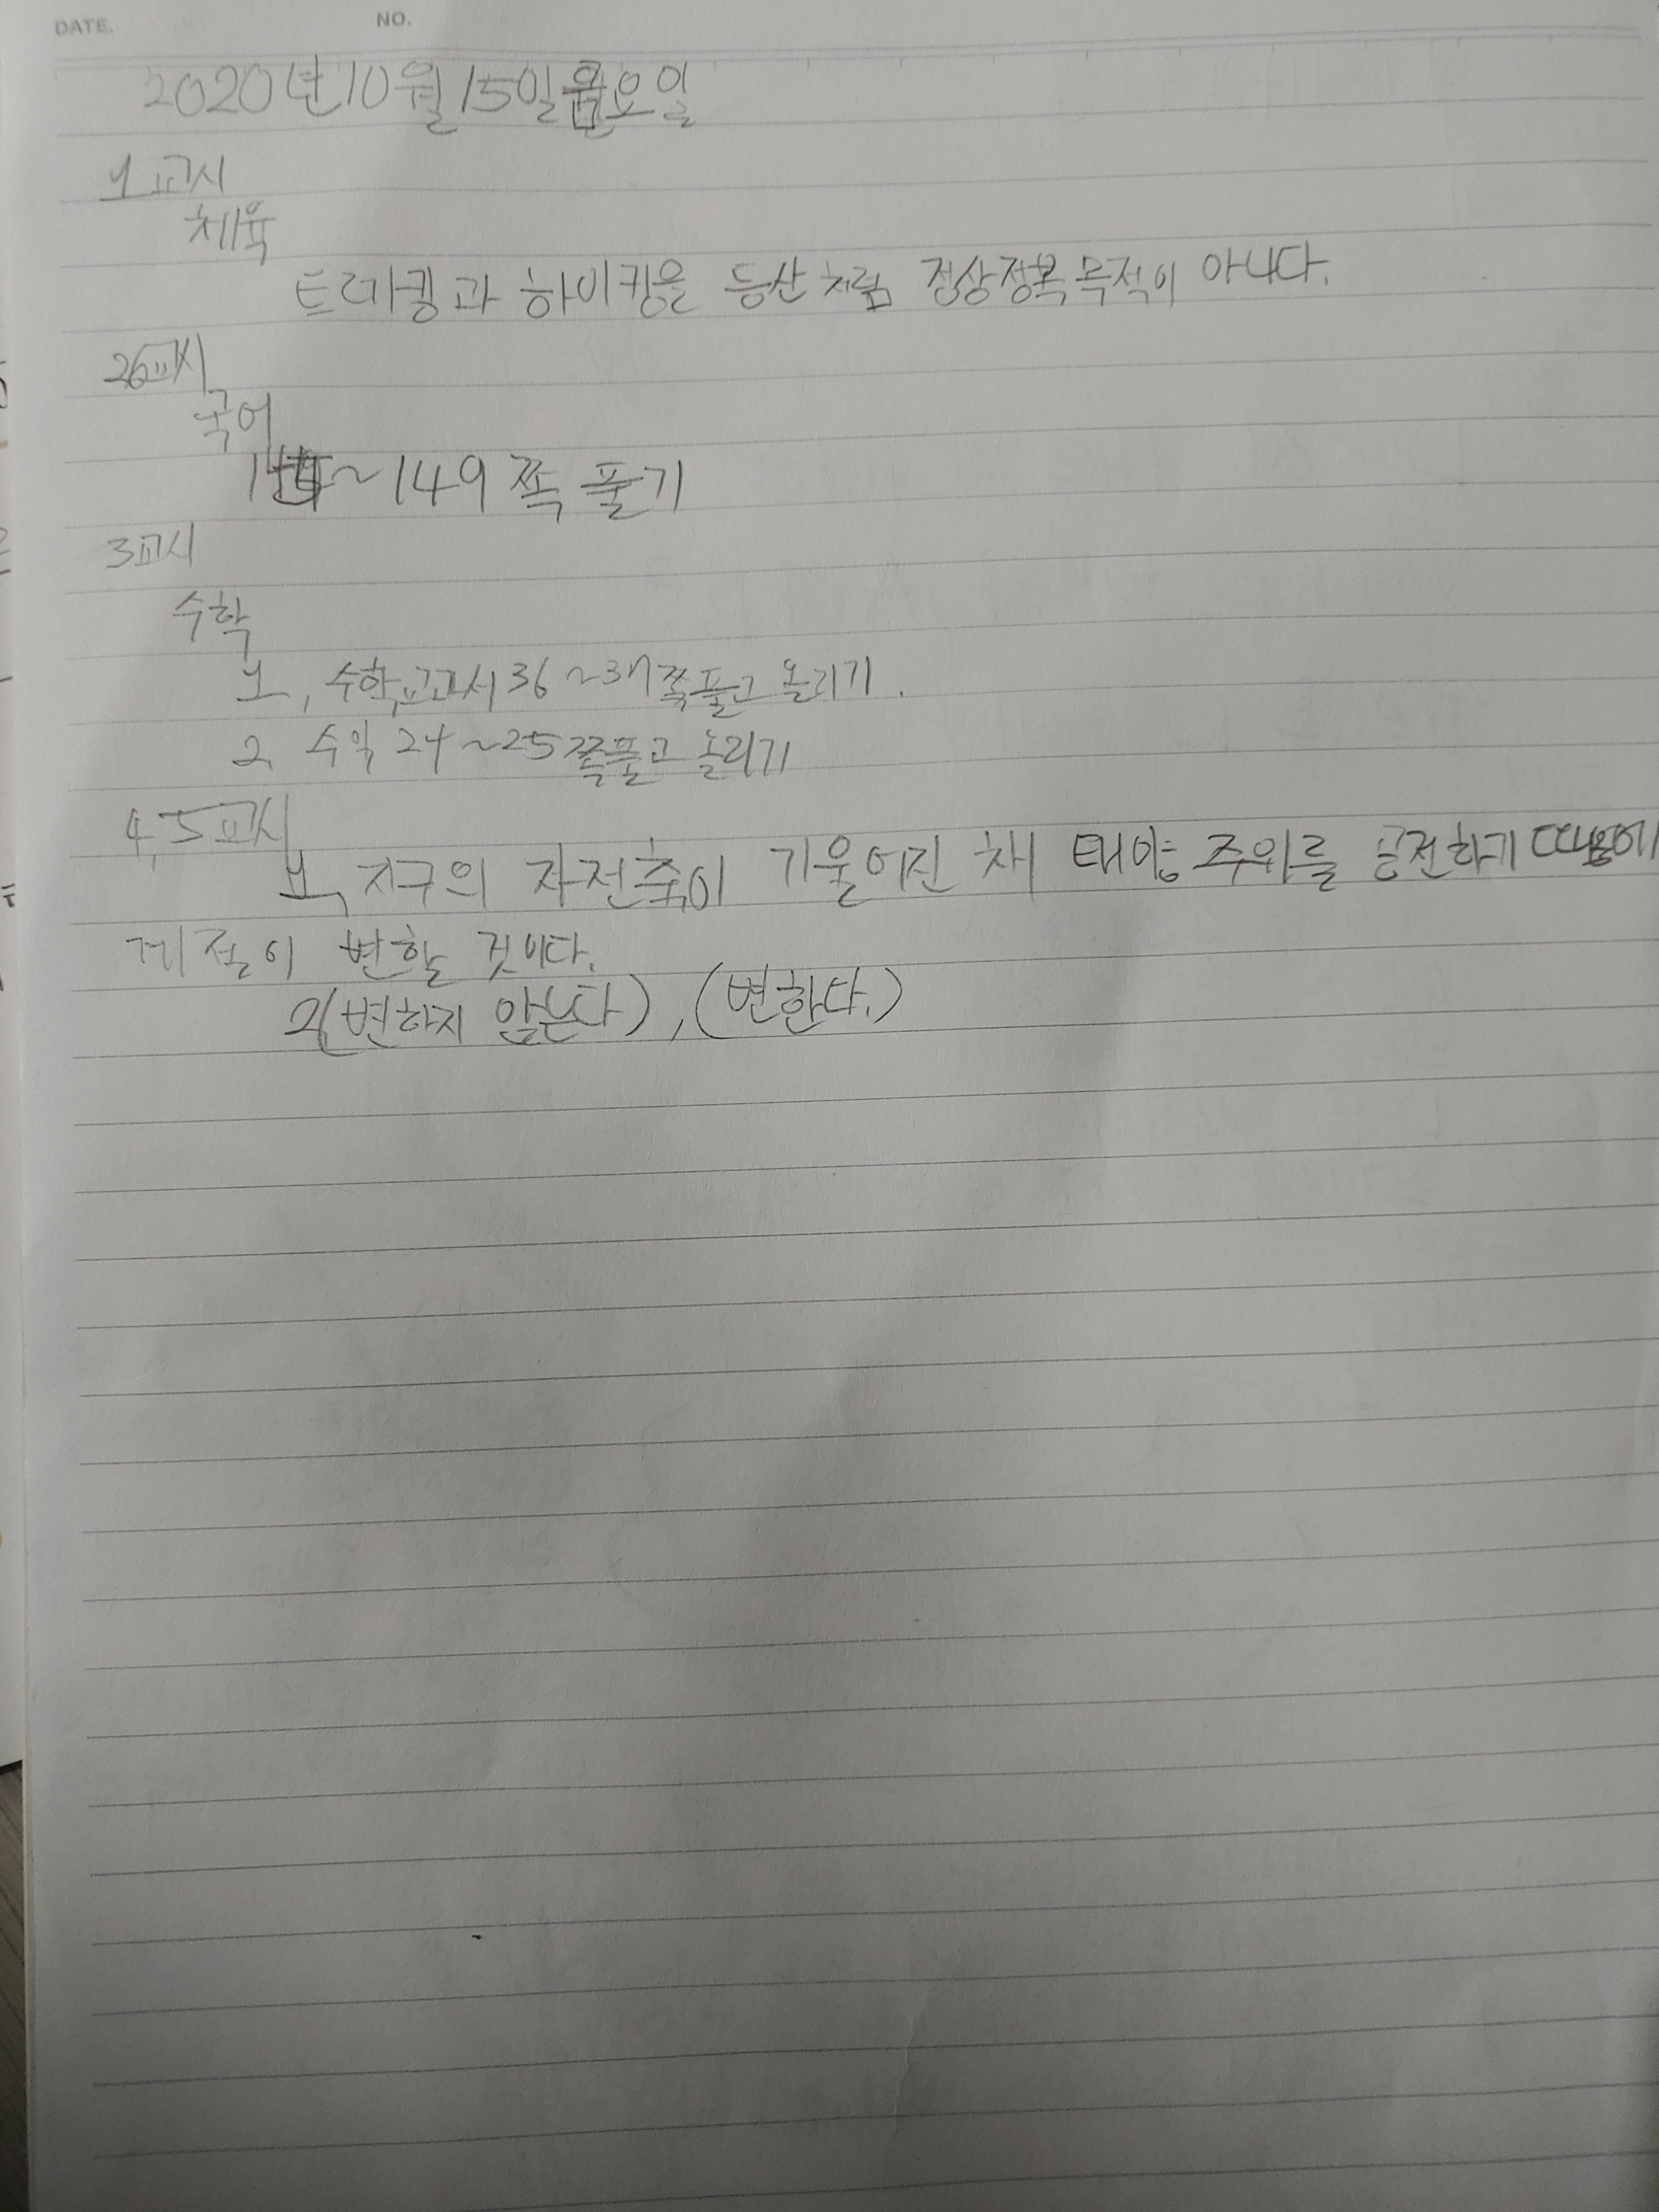 DATE. NO.
2020년10월15일 요일
1교시
체육
트레킹과 하이킹은 등산처럼 정상정복 목적이 아니다.
26교시
국어
~149쪽 풀기
3교시
수학
1, 수학교과서 36~37쪽풀고 올리기.
2 수익 24~25쪽풀고 올리기
4,5교시
1, 지구의 자전축이 기울어진 채 태양 주위를 공전하기 때문에
계절이 변할 것이다.
2(변하지 않는다), (변한다.)